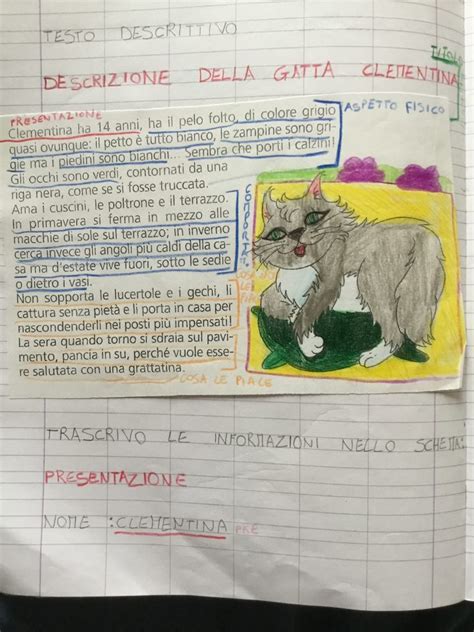 TESTO DESCRITTIVO
TITOLO
DESCRIZIONE DELLA GATTA CLEMENTINA
PRESENTAZIONE
ASPETTO FISICO
Clementina ha 14 anni, ha il pelo folto, di colore grigio
quasi ovunque: il petto è tutto bianco, le zampine sono gri-
gie ma i piedini sono bianchi... Sembra che porti i calzini!
Gli occhi sono verdi, contornati da una
riga nera, come se si fosse truccata.
Ama i cuscini, le poltrone e il terrazzo.
In primavera si ferma in mezzo alle
macchie di sole sul terrazzo; in inverno
cerca invece gli angoli più caldi della ca-
sa ma d'estate vive fuori, sotto le sedie
o dietro i vasi.
Non sopporta le lucertole e i gechi, li
cattura senza pietà e li porta in casa per
nascondernli nei posti più impensati!
La sera quando torno si sdraia sul pavi-
mento, pancia in su, perché vuole esse-
re salutata con una grattatina.
COSA LE PIACE
TRASCRIVO LE INFORMAZIONI NELLO SCHEMA:
PRESENTAZIONE
NOME : CLEMENTINA PRE